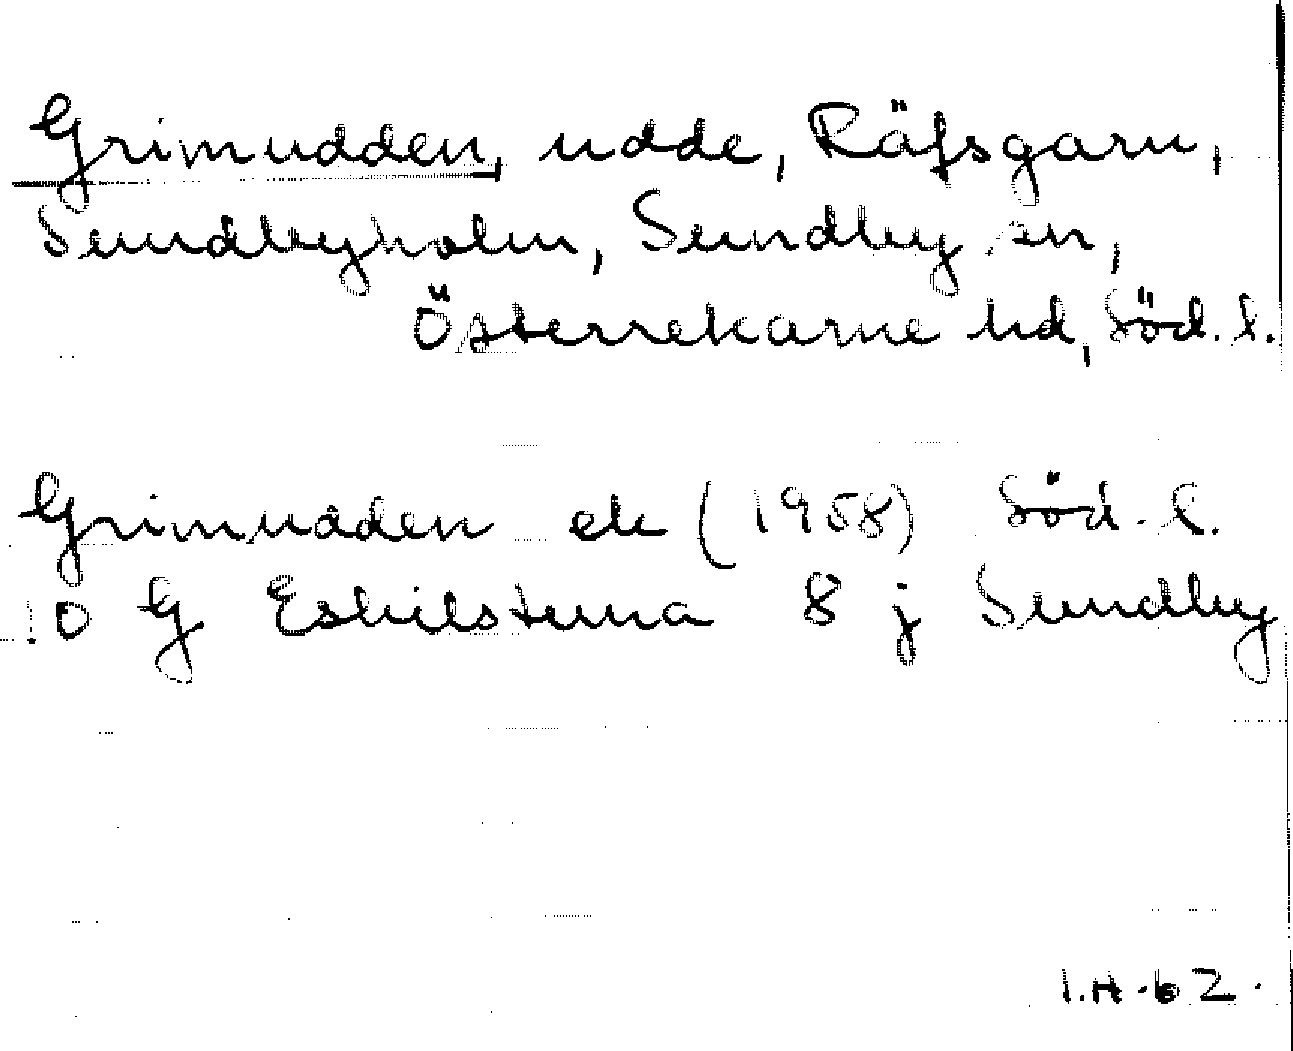 Grimudden, udde, Räfsgarn,
Sundbyholm, Sundby sn,
Österrekarne hd, Söd. l.
Grimudden ek (1958) Söd. l.
10 G Eskilstuna 8 j Sundby
I.H. 62.